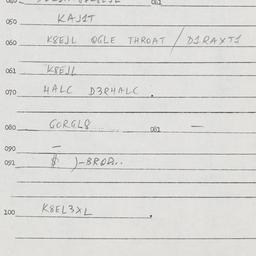 050 KAJ1T
060 K8EJL OGLE THROAT / D1RAXT1
061 K8EJL
070 4ALC D3R4ALC .
080 GORGL8 081 —
090 —
091 $ )-BROD..
100 K8EL3XL .